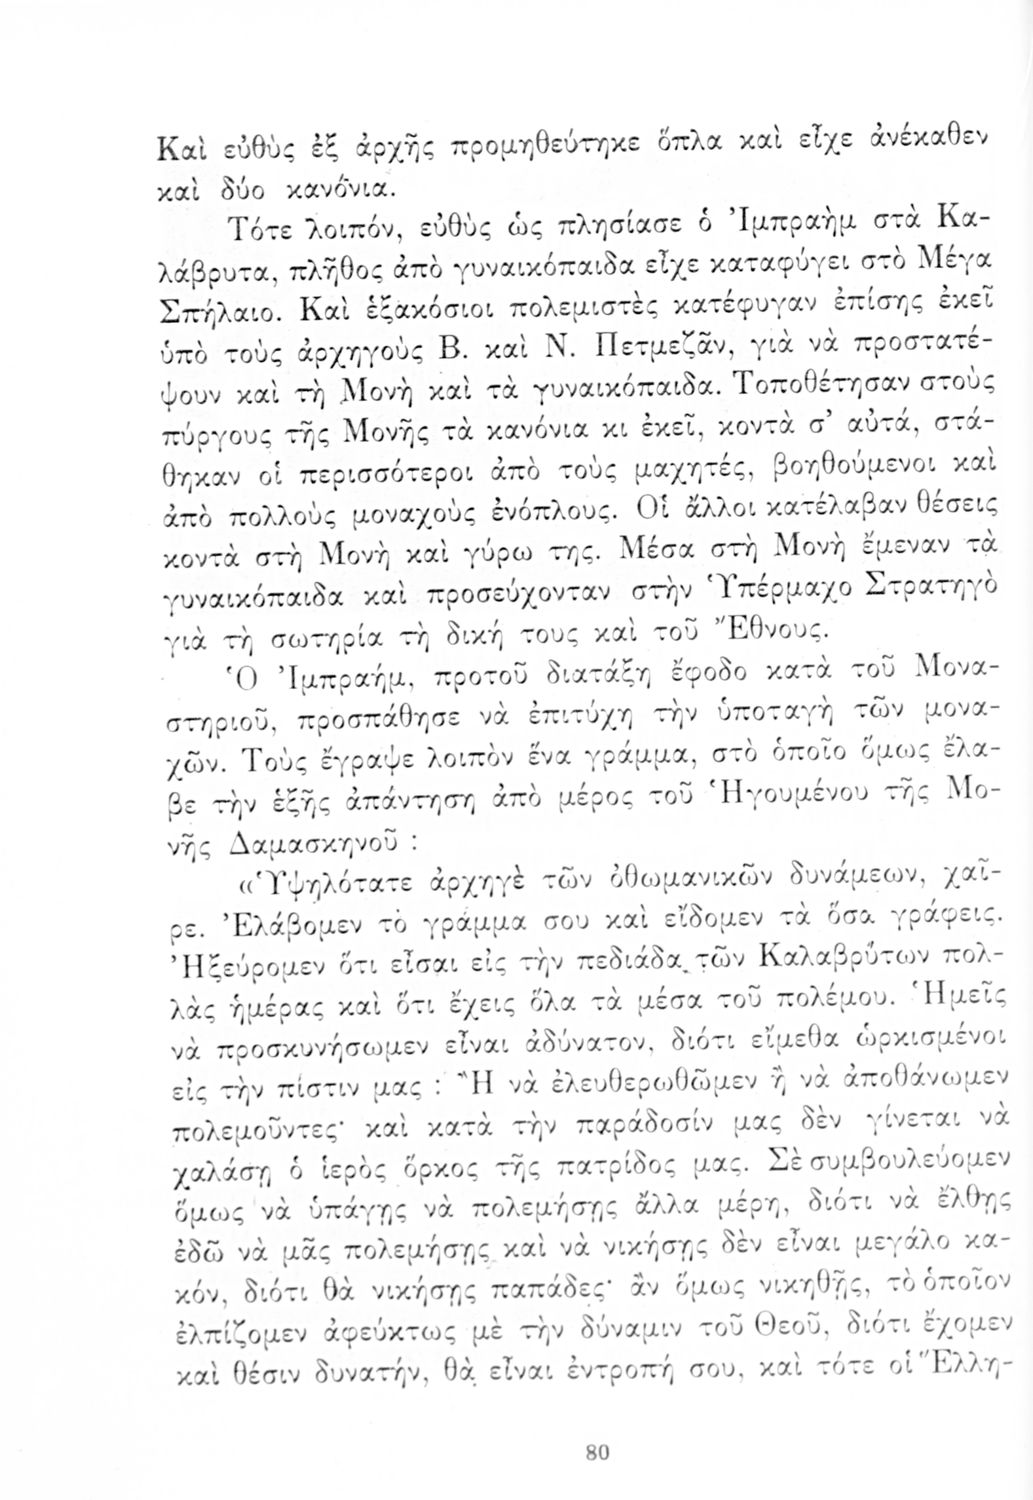 Καὶ εὐθὺς ἐξ ἀρχῆς προμηθεύτηκε ὅπλα καὶ εἶχε ἀνέκαθεν
καὶ δύο κανόνια.
Τότε λοιπόν, εὐθὺς ὡς πλησίασε ὁ Ἰμπραὴμ στὰ Κα-
λάβρυτα, πλῆθος ἀπὸ γυναικόπαιδα εἶχε καταφύγει στὸ Μέγα
Σπήλαιο. Καὶ ἑξακόσιοι πολεμιστὲς κατέφυγαν ἐπίσης ἐκεῖ
ὑπὸ τοὺς ἀρχηγοὺς Β. καὶ Ν. Πετμεζᾶν, γιὰ νὰ προστατέ-
ψουν καὶ τὴ Μονὴ καὶ τὰ γυναικόπαιδα. Τοποθέτησαν στοὺς
πύργους τῆς Μονῆς τὰ κανόνια κι ἐκεῖ, κοντὰ σ' αὐτά, στά-
θηκαν οἱ περισσότεροι ἀπὸ τοὺς μαχητές, βοηθούμενοι καὶ
ἀπὸ πολλοὺς μοναχοὺς ἐνόπλους. Οἱ ἄλλοι κατέλαβαν θέσεις
κοντὰ στὴ Μονὴ καὶ γύρω της. Μέσα στὴ Μονὴ ἔμεναν τὰ
γυναικόπαιδα καὶ προσεύχονταν στὴν Ὑπέρμαχο Στρατηγὸ
γιὰ τὴ σωτηρία τὴ δική τους καὶ τοῦ Ἔθνους.
Ὁ Ἰμπραήμ, προτοῦ διατάξη ἔφοδο κατὰ τοῦ Μονα-
στηριοῦ, προσπάθησε νὰ ἐπιτύχη τὴν ὑποταγὴ τῶν μονα-
χῶν. Τοὺς ἔγραψε λοιπὸν ἕνα γράμμα, στὸ ὁποῖο ὅμως ἔλα-
βε τὴν ἑξῆς ἀπάντηση ἀπὸ μέρος τοῦ Ἡγουμένου τῆς Μο-
νῆς Δαμασκηνοῦ :
«Ὑψηλότατε ἀρχηγὲ τῶν ὀθωμανικῶν δυνάμεων, χαῖ-
ρε. Ἐλάβομεν τὸ γράμμα σου καὶ εἴδομεν τὰ ὅσα γράφεις.
Ἠξεύρομεν ὅτι εἶσαι εἰς τὴν πεδιάδα τῶν Καλαβρύτων πολ-
λὰς ἡμέρας καὶ ὅτι ἔχεις ὅλα τὰ μέσα τοῦ πολέμου. Ἡμεῖς
νὰ προσκυνήσωμεν εἶναι ἀδύνατον, διότι εἴμεθα ὡρκισμένοι
εἰς τὴν πίστιν μας : Ἢ νὰ ἐλευθερωθῶμεν ἢ νὰ ἀποθάνωμεν
πολεμοῦντες· καὶ κατὰ τὴν παράδοσίν μας δὲν γίνεται νὰ
χαλάσῃ ὁ ἱερὸς ὅρκος τῆς πατρίδος μας. Σὲ συμβουλεύομεν
ὅμως νὰ ὑπάγῃς νὰ πολεμήσῃς ἄλλα μέρη, διότι νὰ ἔλθῃς
ἐδῶ νὰ μᾶς πολεμήσῃς καὶ νὰ νικήσῃς δὲν εἶναι μεγάλο κα-
κόν, διότι θὰ νικήσῃς παπάδες· ἂν ὅμως νικηθῇς, τὸ ὁποῖον
ἐλπίζομεν ἀφεύκτως μὲ τὴν δύναμιν τοῦ Θεοῦ, διότι ἔχομεν
καὶ θέσιν δυνατήν, θὰ εἶναι ἐντροπή σου, καὶ τότε οἱ Ἕλλη-
80